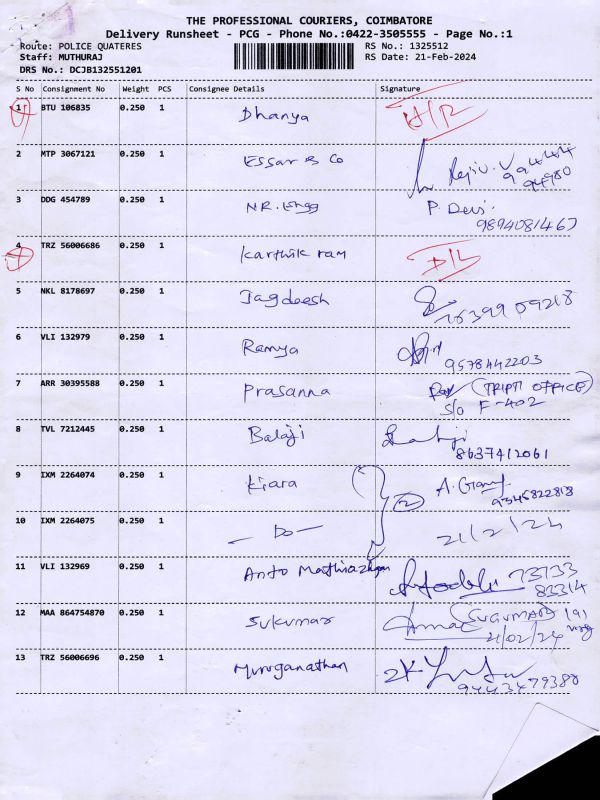 THE PROFESSIONAL COURIERS, COIMBATORE
Delivery Runsheet - PCG - Phone No.:0422-3505555 - Page No.:1
Route: POLICE QUATERES RS No.: 1325512
Staff: MUTHURAJ RS Date: 21-Feb-2024
DRS No.: DCJB132551201
S No Consignment No Weight PCS Consignee Details Signature
1 BTU 106835 0.250 1 Dhanya
2 MTP 3067121 0.250 1 Essar & Co Rejiv. V
3 DDG 454789 0.250 1 P. Devi
9894081467
4 TRZ 56006686 0.250 1 Karthik ram D/L
5 NKL 8178697 0.250 1 Jagdeesh
7639909218
6 VLI 132979 0.250 1 Ramya
9578442203
7 ARR 30395588 0.250 1 Prasanna (TRIPTI OFFICE)
S/o F-402
8 TVL 7212445 0.250 1 Balaji Balaji
8637412061
9 IXM 2264074 0.250 1 Kiara 2 A.
9345822818
10 IXM 2264075 0.250 1 - Do - 21/2/24
11 VLI 132969 0.250 1 Anto Mathiazhgan 73733
83314
12 MAA 864754870 0.250 1 Sukumar
21/02/24
13 TRZ 56006696 0.250 1 Muruganathan
9443479388